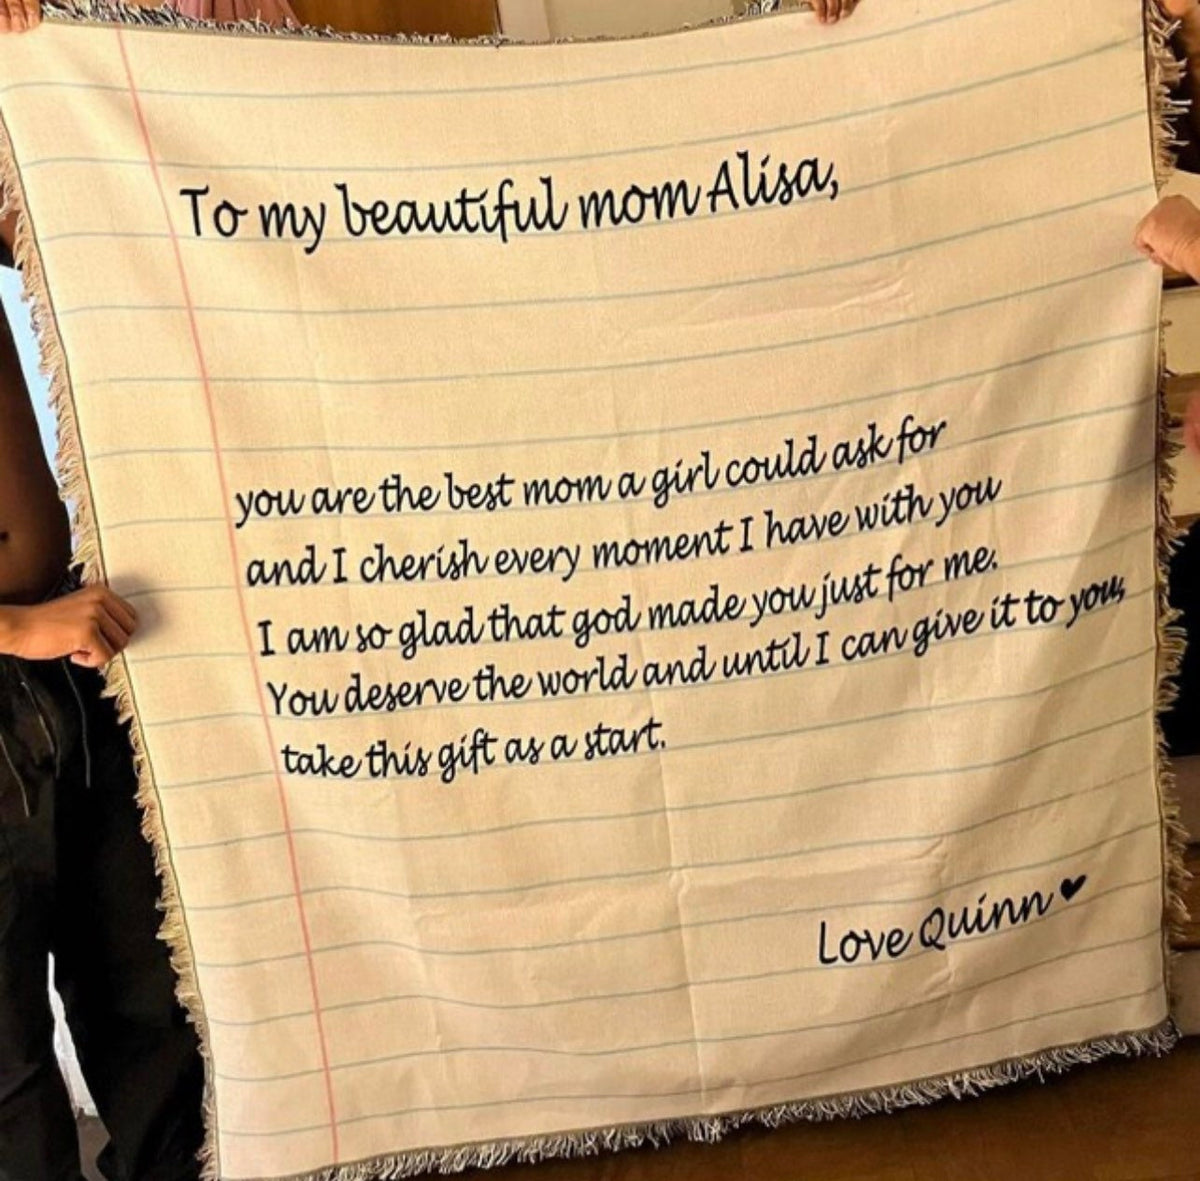 To my beautiful mom Alisa,
you are the best mom a girl could ask for
and I cherish every moment I have with you
I am so glad that god made you just for me.
You deserve the world and until I can give it to you,
take this gift as a start.
Love Quinn ♥